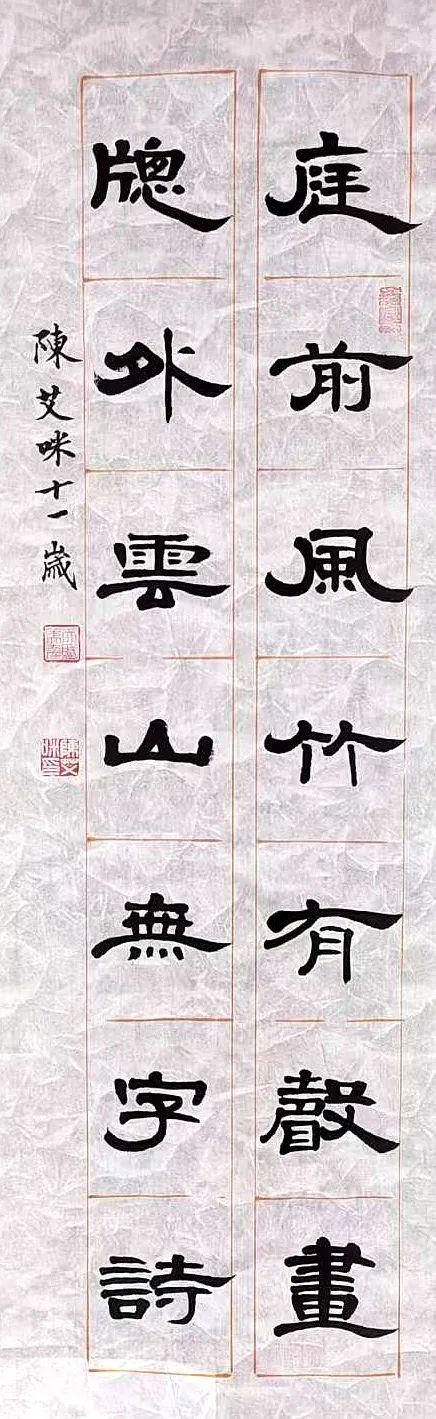 庭前風竹有聲畫
牕外雲山無字詩
陳艾咪十一歲
陳艾咪印